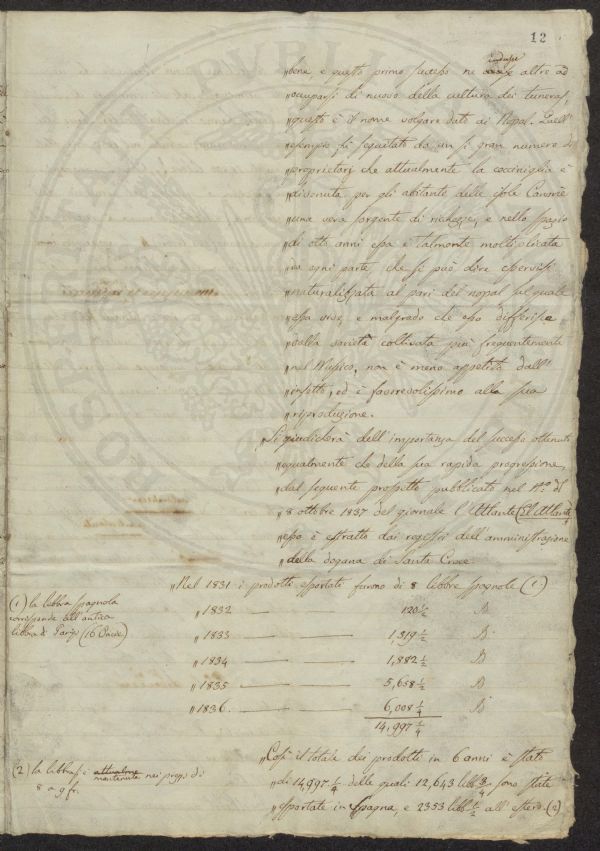 12
indusse
„bene e questo primo successo ne altri ad
„occuparsi di nuovo della cultura dei tuneras,
„questo è il nome volgare dato ai Nopos. Quell'
„esempio fu seguitato da un sì gran numero di
„proprietarj che attualmente la cocciniglia è
„divenuta per gli abitanti delle isole Canarie
„una vera sorgente di richezze, e nello spazio
„di otto anni essa è talmente moltiplicata
„in ogni parte, che si può dire essersi
„naturalizzata al pari del nopal sul quale
„essa vive, e malgrado che esso differisca
„dalla varietà coltivata più frequentemente
„nel Messico, non è meno appetita dall'
„insetto, ed è favorevolissimo alla sua
„riproduzione.
„Si giudicherà dell'importanza del successo ottenuto
„egualmente che della sua rapida progressione,
„dal seguente prospetto pubblicato nel N.º di
„8 ottobre 1837 del giornale l'Atlante (El Atlante)
„esso è estratto dai registri dell'amministrazione
„della dogana di Santa Croce.
„Nel 1831 i prodotti esportati furono di 8 libbre spagnole (1)
(1) la libbra spagnola
corrisponde all'antica
libbra di Parigi (16 Oncie)
„1832 — — 120 1/2
„1833 — — 1,319 1/2
„1834 — — 1,882 1/2
„1835 — — 5,658 1/2
„1836. — — 6,008 1/4
14,997 1/4
„Così il totale dei prodotti in 6 anni è stato
„di 14,997 1/4 delle quali 12,643 libb. 3/4 sono state
„esportate in Spagna, e 2353 libb. 1/2 all'estero. (2)
(2) la libbra si è attualme mantenuta nei prezzi di
8 a 9 fr.